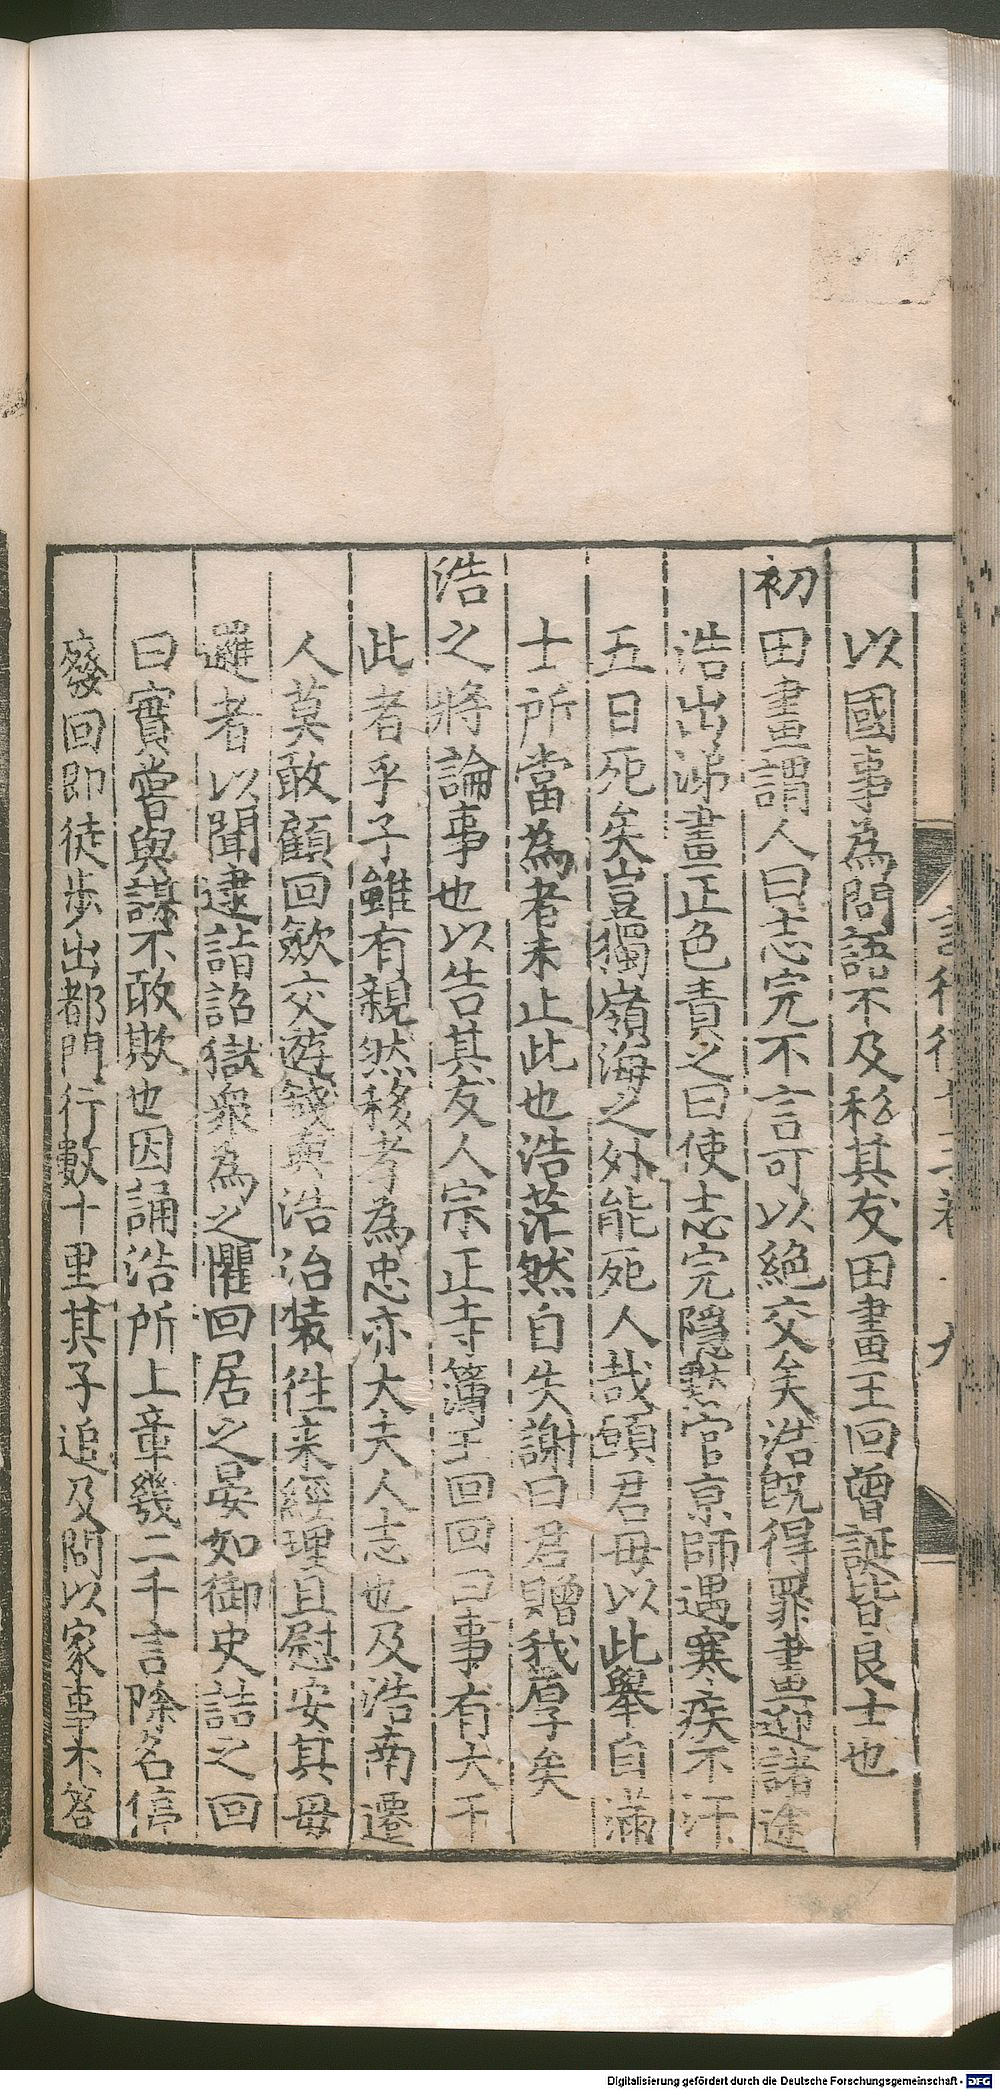 以國事為問語不及私其友田畫王回曾誕皆良士也
初田畫謂人曰志完不言可以絶交矣浩既得罪畫迎諸途
浩出涕畫正色責之曰使志完隱默官京師遇寒疾不汗
五日死矣豈獨嶺海之外能死人哉願君毋以此舉自滿
士所當為者未止此也浩茫然自失謝曰君贈我厚矣
浩之將論事也以告其友人宗正寺簿王回回曰事有大于
此者乎子雖有親然移孝為忠亦太夫人志也及浩南遷
人莫敢顧回歛交遊錢與浩治装徃来經理且慰安其母
邏者以聞逮詣詔獄衆為之懼回居之晏如御史詰之回
曰實嘗與謀不敢欺也因誦浩所上章幾二千言除名停
廢回即徒步出都門行數十里其子追及問以家事不答
Digitalisierung gefördert durch die Deutsche Forschungsgemeinschaft - DFG